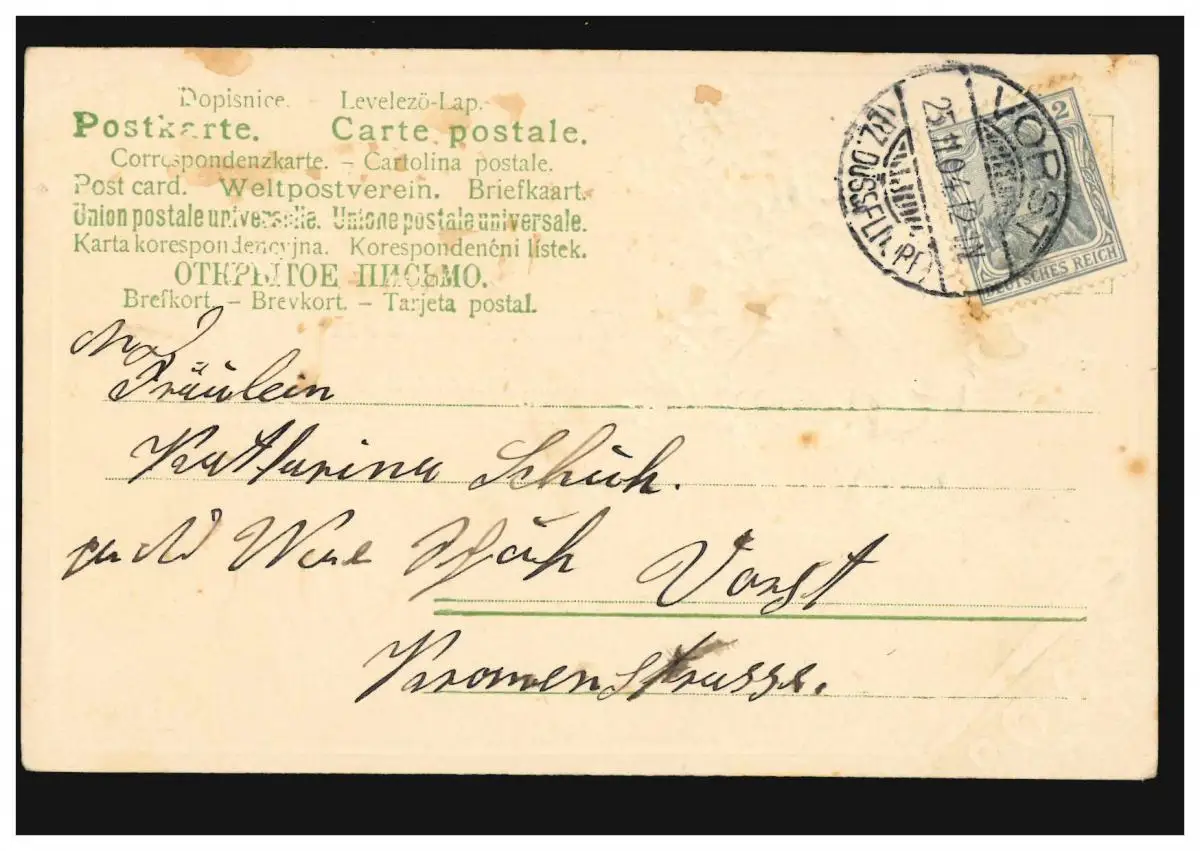 Dopisnice. Levelezö-Lap.
Postkarte. Carte postale.
Correspondenzkarte. – Cartolina postale.
Post card. Weltpostverein. Briefkaart.
Union postale universelle. Unione postale universale.
Karta korespondencyjna. Korespondenční lístek.
ОТКРЫТОЕ ПИСЬМО.
Brefkort. – Brevkort. – Tarjeta postal.
VORST
25.11.04.12-1N.
(BZ. DÜSSELD.)
2
DEUTSCHES REICH
Fräulein
Katharina Schuh.
Vorst
Kronenstrasse.